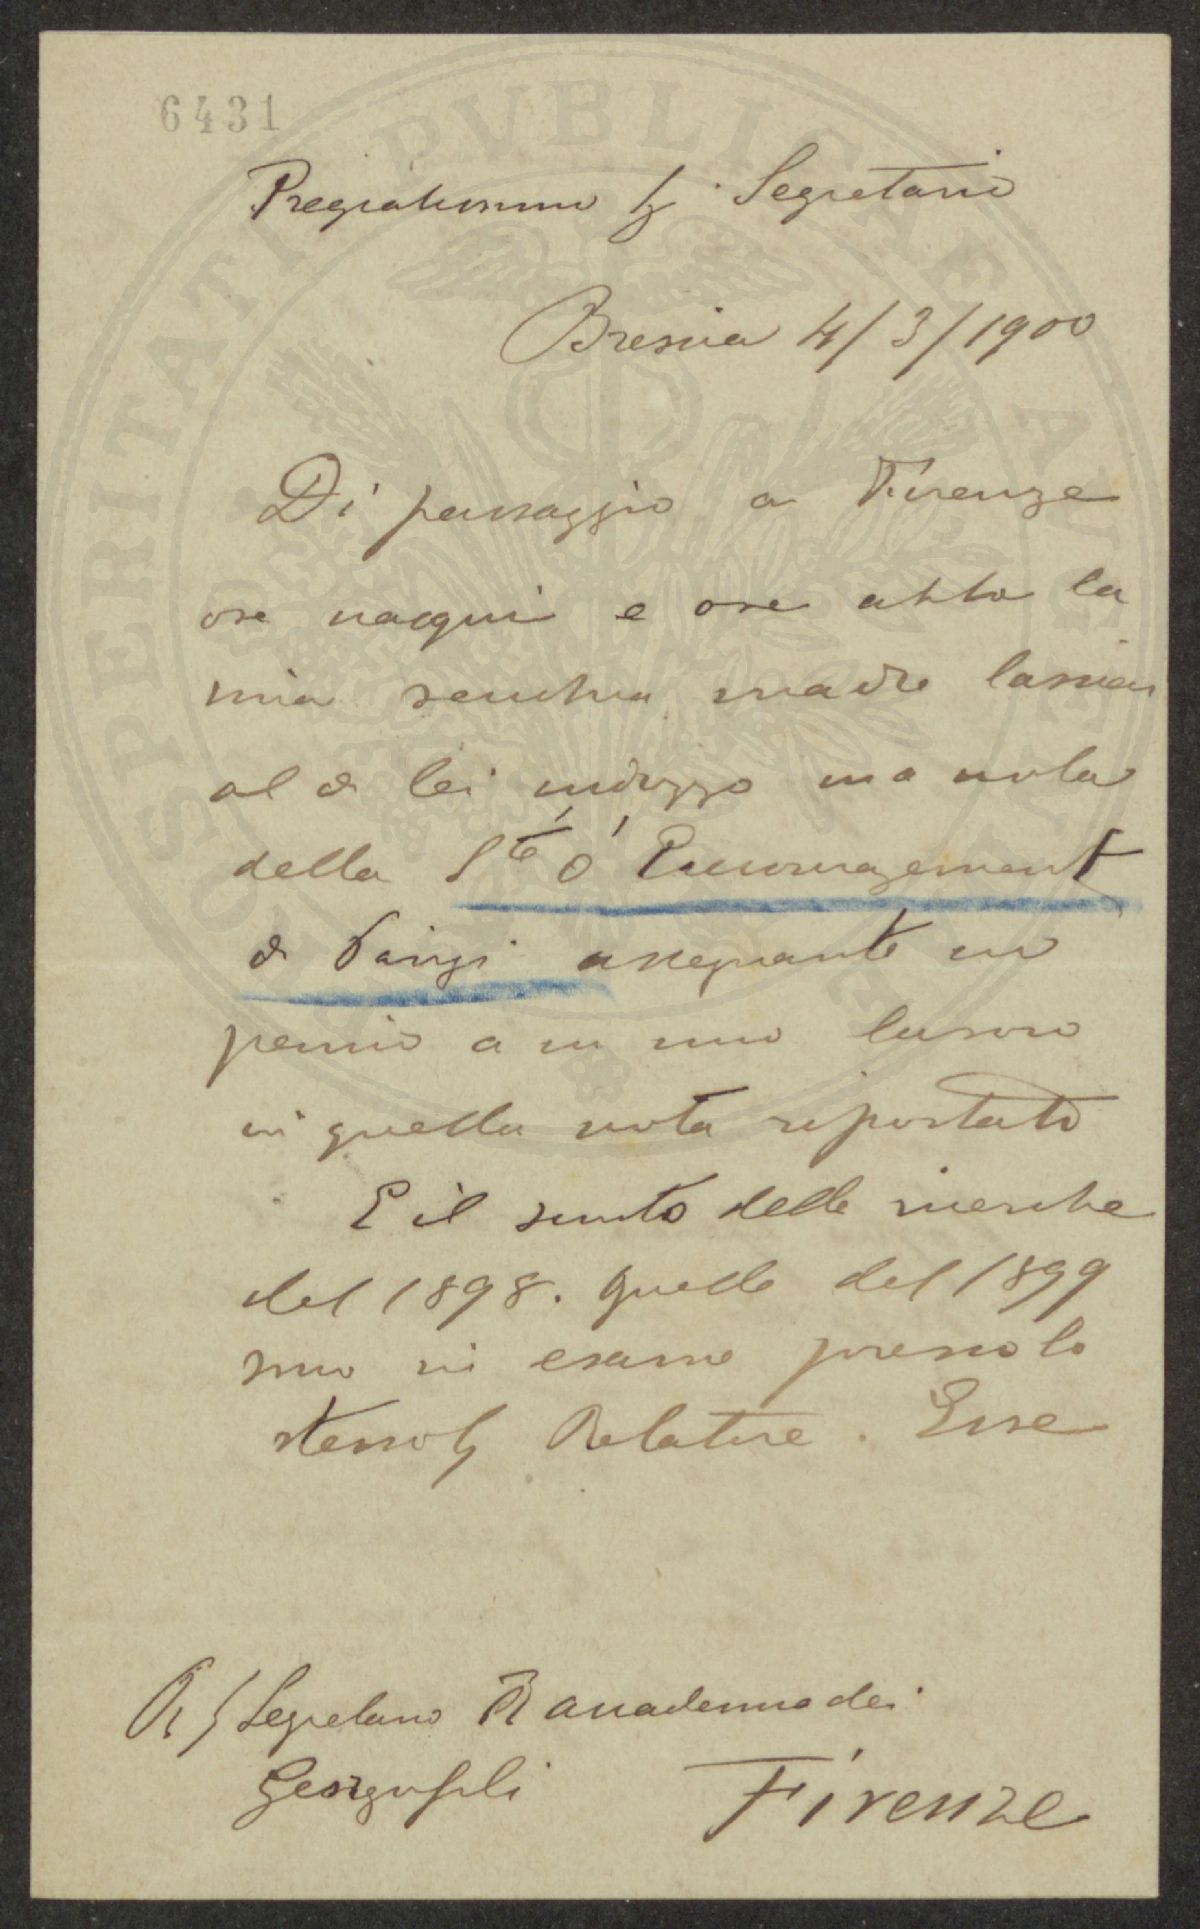 6431
Pregiatissimo Sg. Segretario
Brescia 4/3/1900
Di passaggio a Firenze
ove nacqui e ove abita la
mia vecchia madre lasciai
al di lei indirizzo una nota
della S.té d'Encouragement
di Parigi assegnante un
premio a un mio lavoro
in quella nota riportato
E il sunto delle ricerche
del 1898. Quelle del 1899
sono in esame presso lo
stesso Sg Relatore. Esse
Segretario R accademia dei
Georgofili Firenze
PROSPERITATI PVBLICAE AVGENDAE